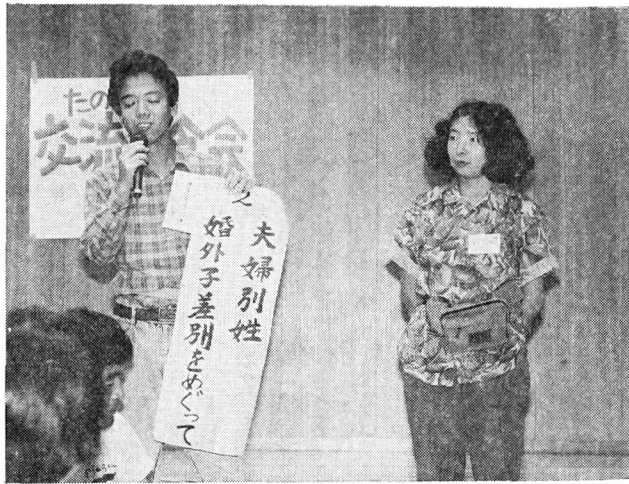 たの
交流 会
2
夫婦別姓
婚外子差別をめぐって